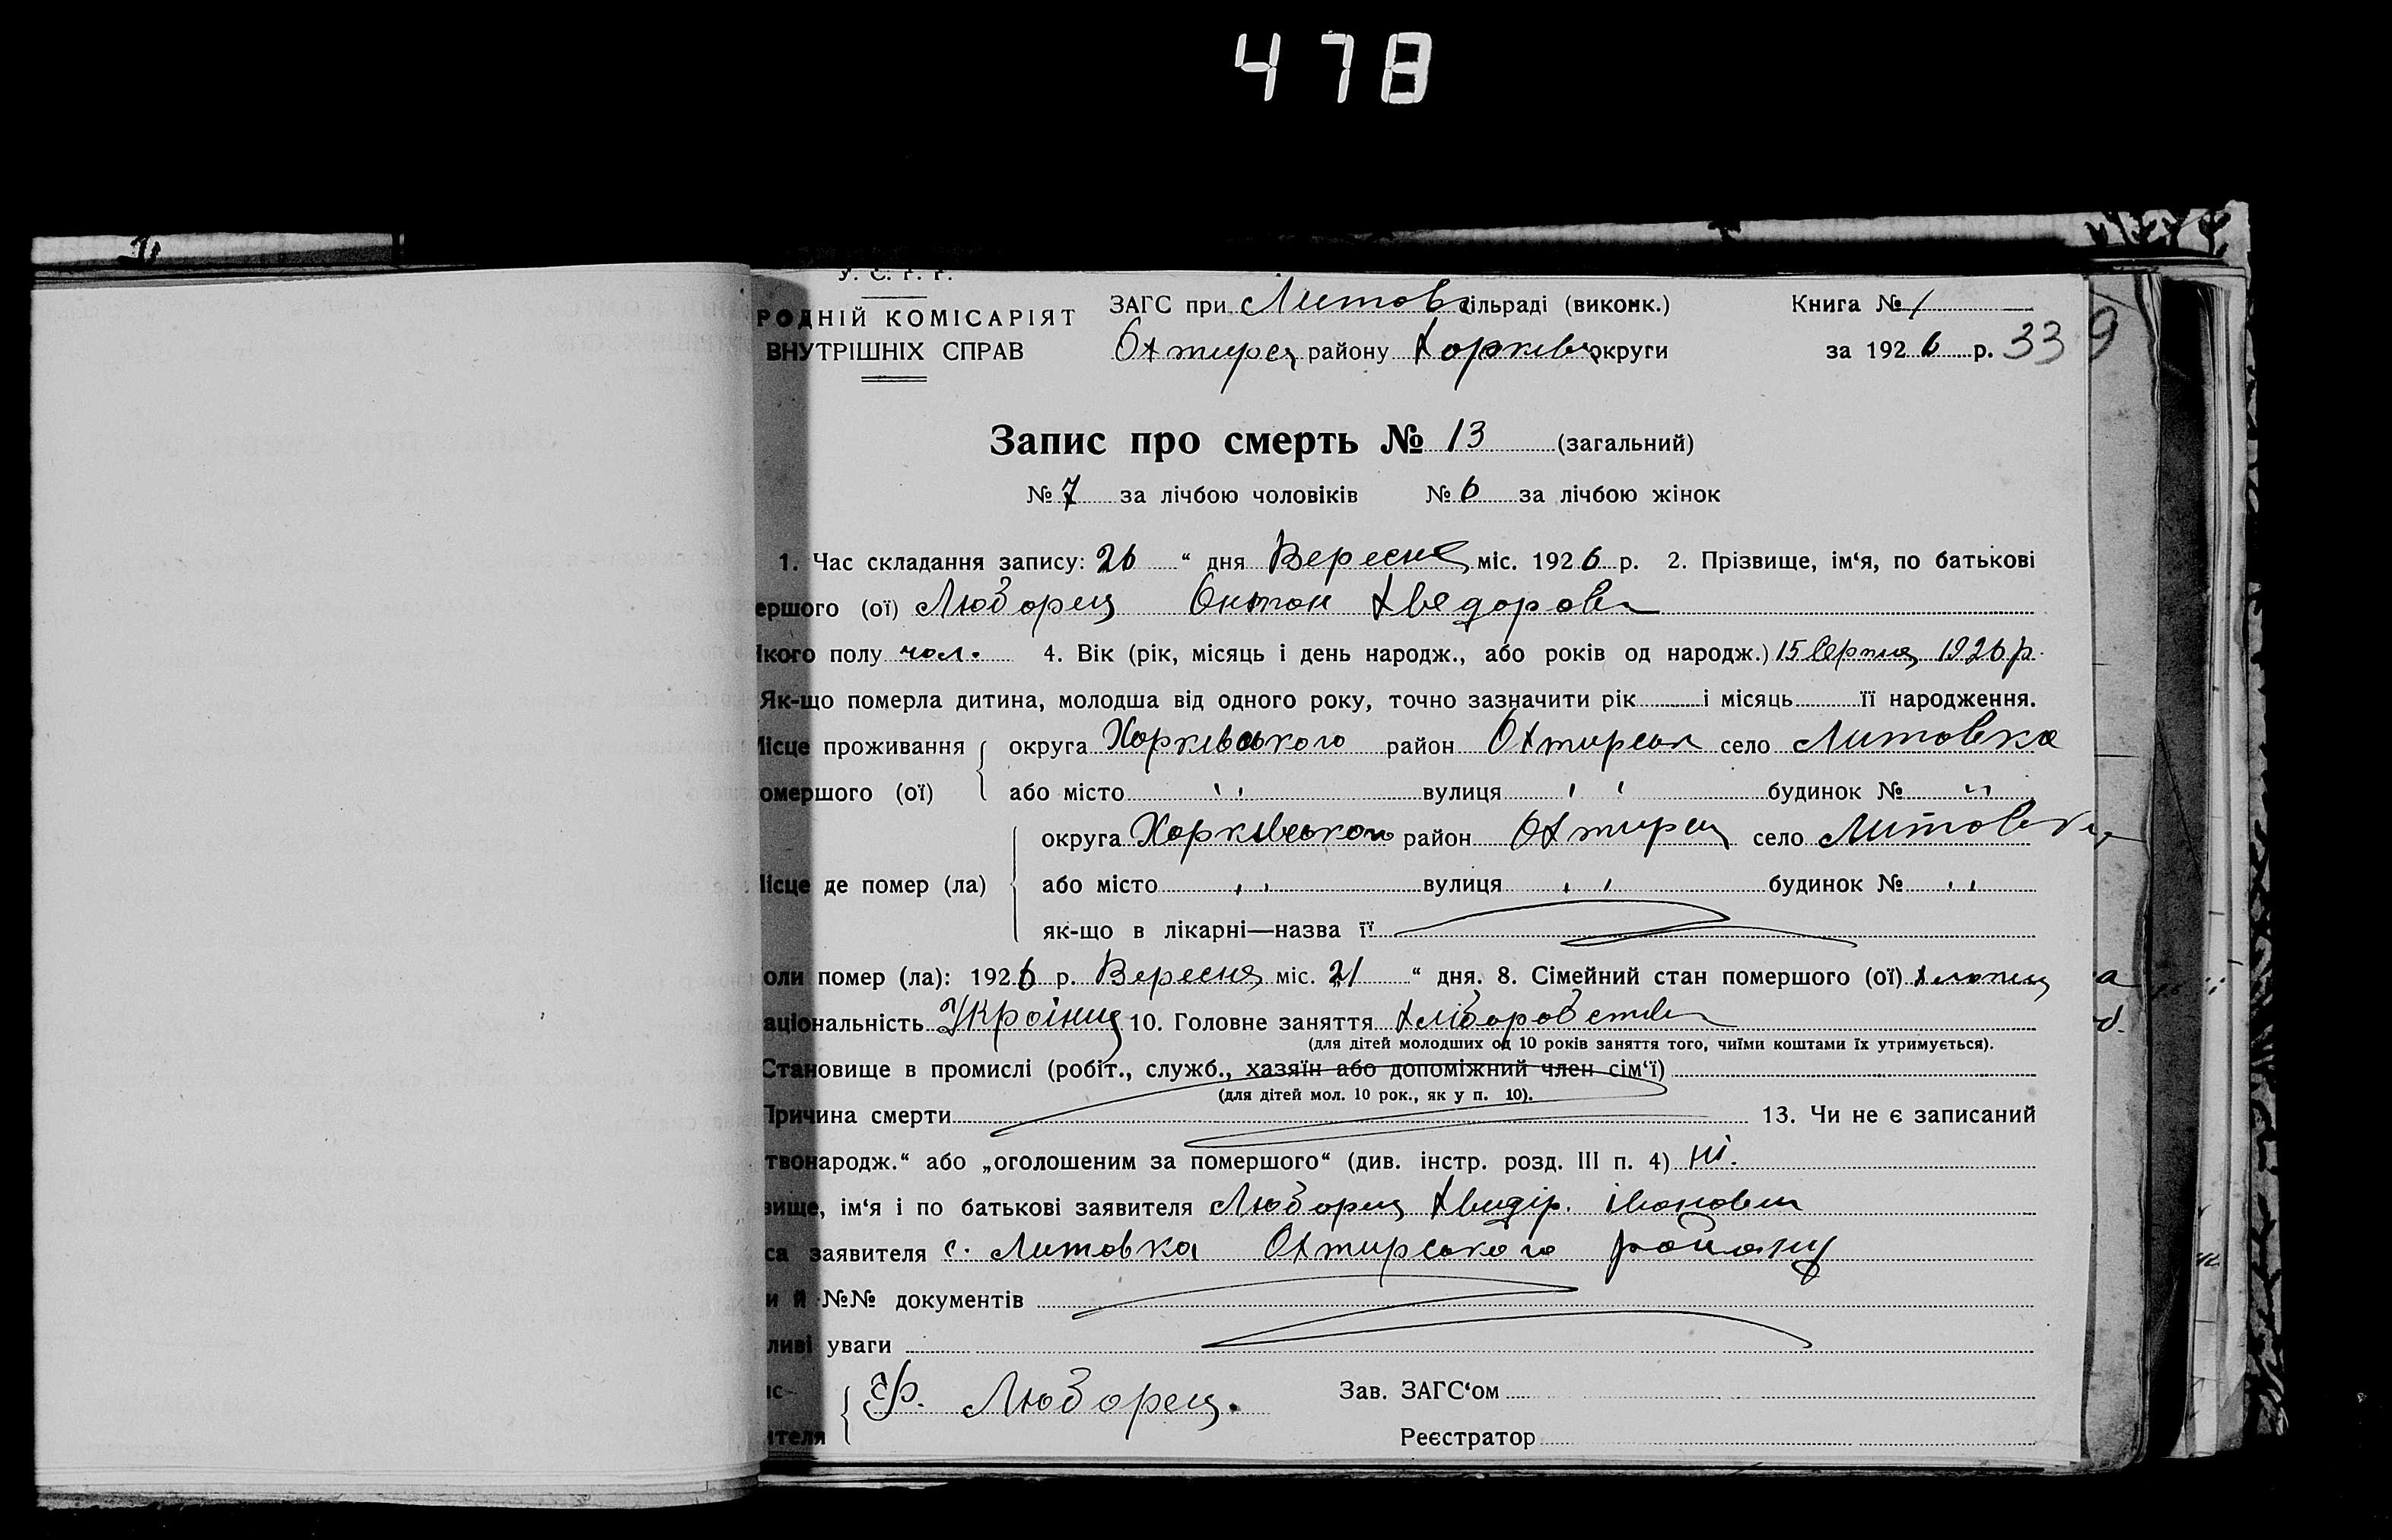 478
У. С. Р. Р.
РОДНІЙ КОМІСАРІЯТ
ВНУТРІШНІХ СПРАВ
ЗАГС при Литовс ільраді (виконк.)
Охтирсц району Харківс округи
Книга № 1
за 1926 р. 339
Запис про смерть № 13 (загальний)
№ 7 за лічбою чоловіків № 6 за лічбою жінок
1. Час складання запису: 26 “ дня Вересня міс. 1926 р. 2. Прізвище, ім‘я, по батькові
ершого (ої) Любарец Онтон Хведорови
кого полу чол. 4. Вік (рік, місяць і день народж., або років од народж.) 15 Серпня 1926 р.
Як-що померла дитина, молодша від одного року, точно зазначити рік і місяць її народження.
Місце проживання округа Харківського район Охтирськ село Литовка
омершого (ої) або місто " вулиця " будинок № "
округа Харківського район Охтирсц село Литовка
Місце де помер (ла) або місто " вулиця " будинок № "
як-що в лікарні—назва її
оли помер (ла): 1926 р. Вересня міс. 21 “ дня. 8. Сімейний стан помершого (ої) хлопец
аціональність Україниц 10. Головне заняття хліборобство
(для дітей молодших од 10 років заняття того, чиїми коштами їх утримується).
Становище в промислі (робіт., служб., хазяїн або допоміжний член сім‘ї)
(для дітей мол. 10 рок., як у п. 10).
Причина смерти 13. Чи не є записаний
твонародж.“ або „оголошеним за помершого“ (див. інстр. розд. III п. 4) ні.
вище, ім‘я і по батькові заявителя Любарец Хведір. Іванович
са заявителя с. Литовка Охтирського району
и й №№ документів
ливі уваги
Ф. Люборец. Зав. ЗАГС‘ом
ителя Реєстратор